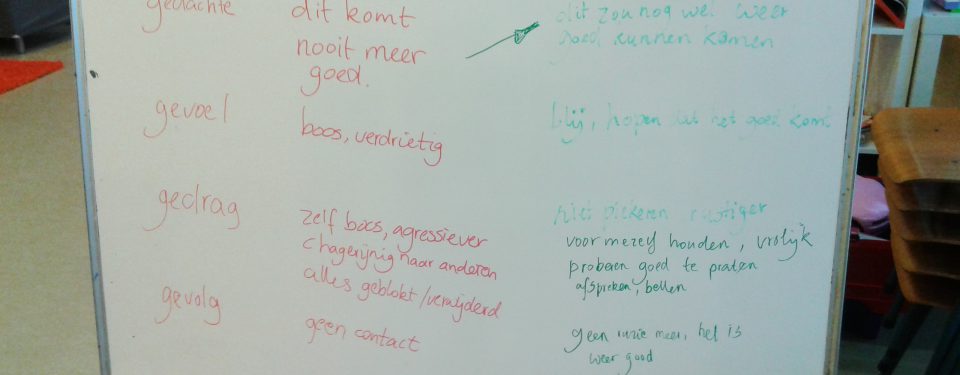 gedachte
dit komt
nooit meer
goed.
dit zou nog wel weer
goed kunnen komen
gevoel
boos, verdrietig
blij, hopen dat het goed komt
gedrag
zelf boos, agressiever
chagerijnig naar anderen
alles geblokt/verwijderd
niet piekeren rustiger
voor mezelf houden, vrolijk
proberen goed te praten
afspreken, bellen
gevolg
geen contact
geen ruzie meer, het is
weer goed